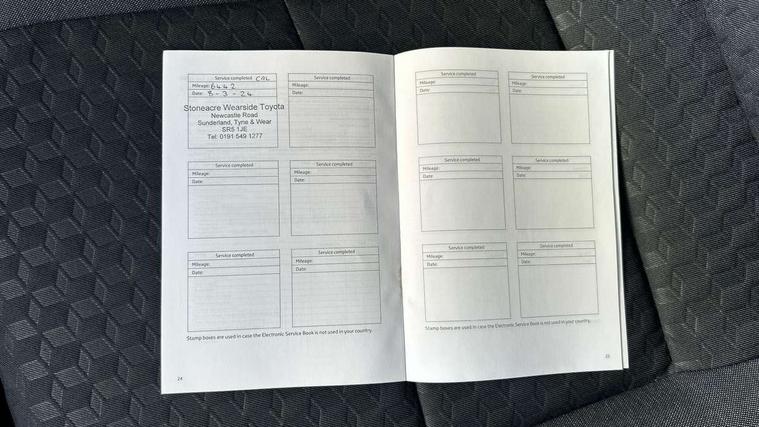 Service completed CAL
Mileage: 6442
Date: 8-3-24
Stoneacre Wearside Toyota
Newcastle Road
Sunderland, Tyne & Wear
SR5 1JE
Tel: 0191 549 1277
Service completed
Mileage:
Date:
Service completed
Mileage:
Date:
Service completed
Mileage:
Date:
Service completed
Mileage:
Date:
Service completed
Mileage:
Date:
Stamp boxes are used in case the Electronic Service Book is not used in your country.
24
Service completed
Mileage:
Date:
Service completed
Mileage:
Date:
Service completed
Mileage:
Date:
Service completed
Mileage:
Date:
Service completed
Mileage:
Date:
Service completed
Mileage:
Date:
Stamp boxes are used in case the Electronic Service Book is not used in your country.
25